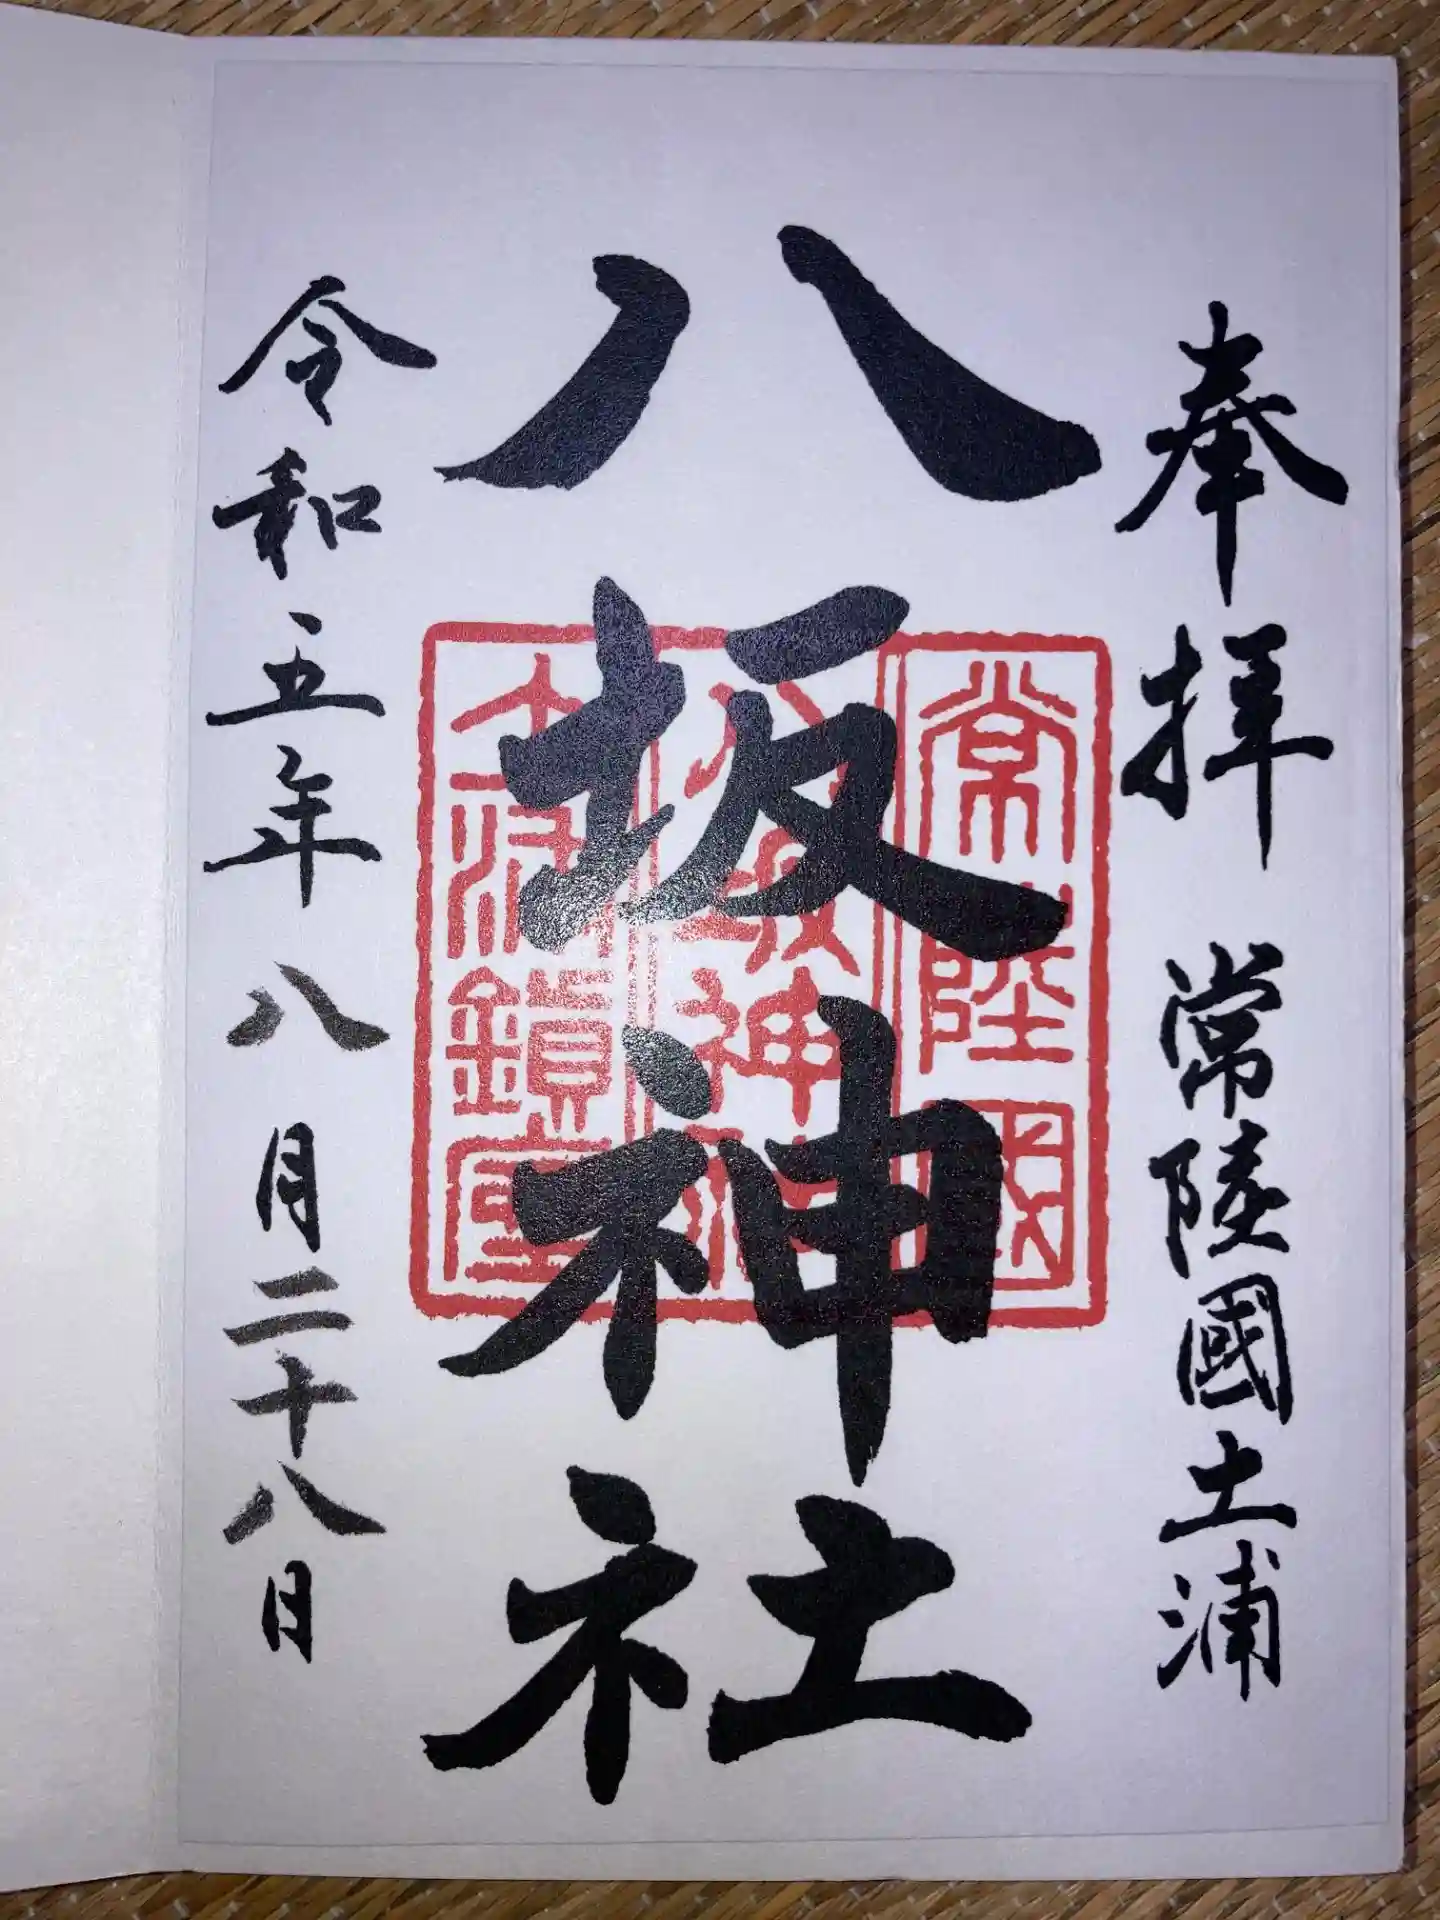 奉拝 常陸國土浦
八坂神社
令和五年八月二十八日
常陸國
八坂神社
土浦鎮座